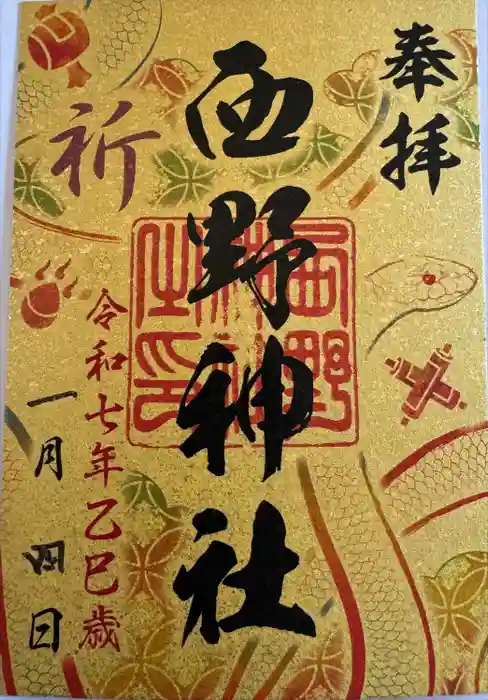 奉拝
西野神社
西野神社之印
祈
令和七年乙巳歳
一月四日